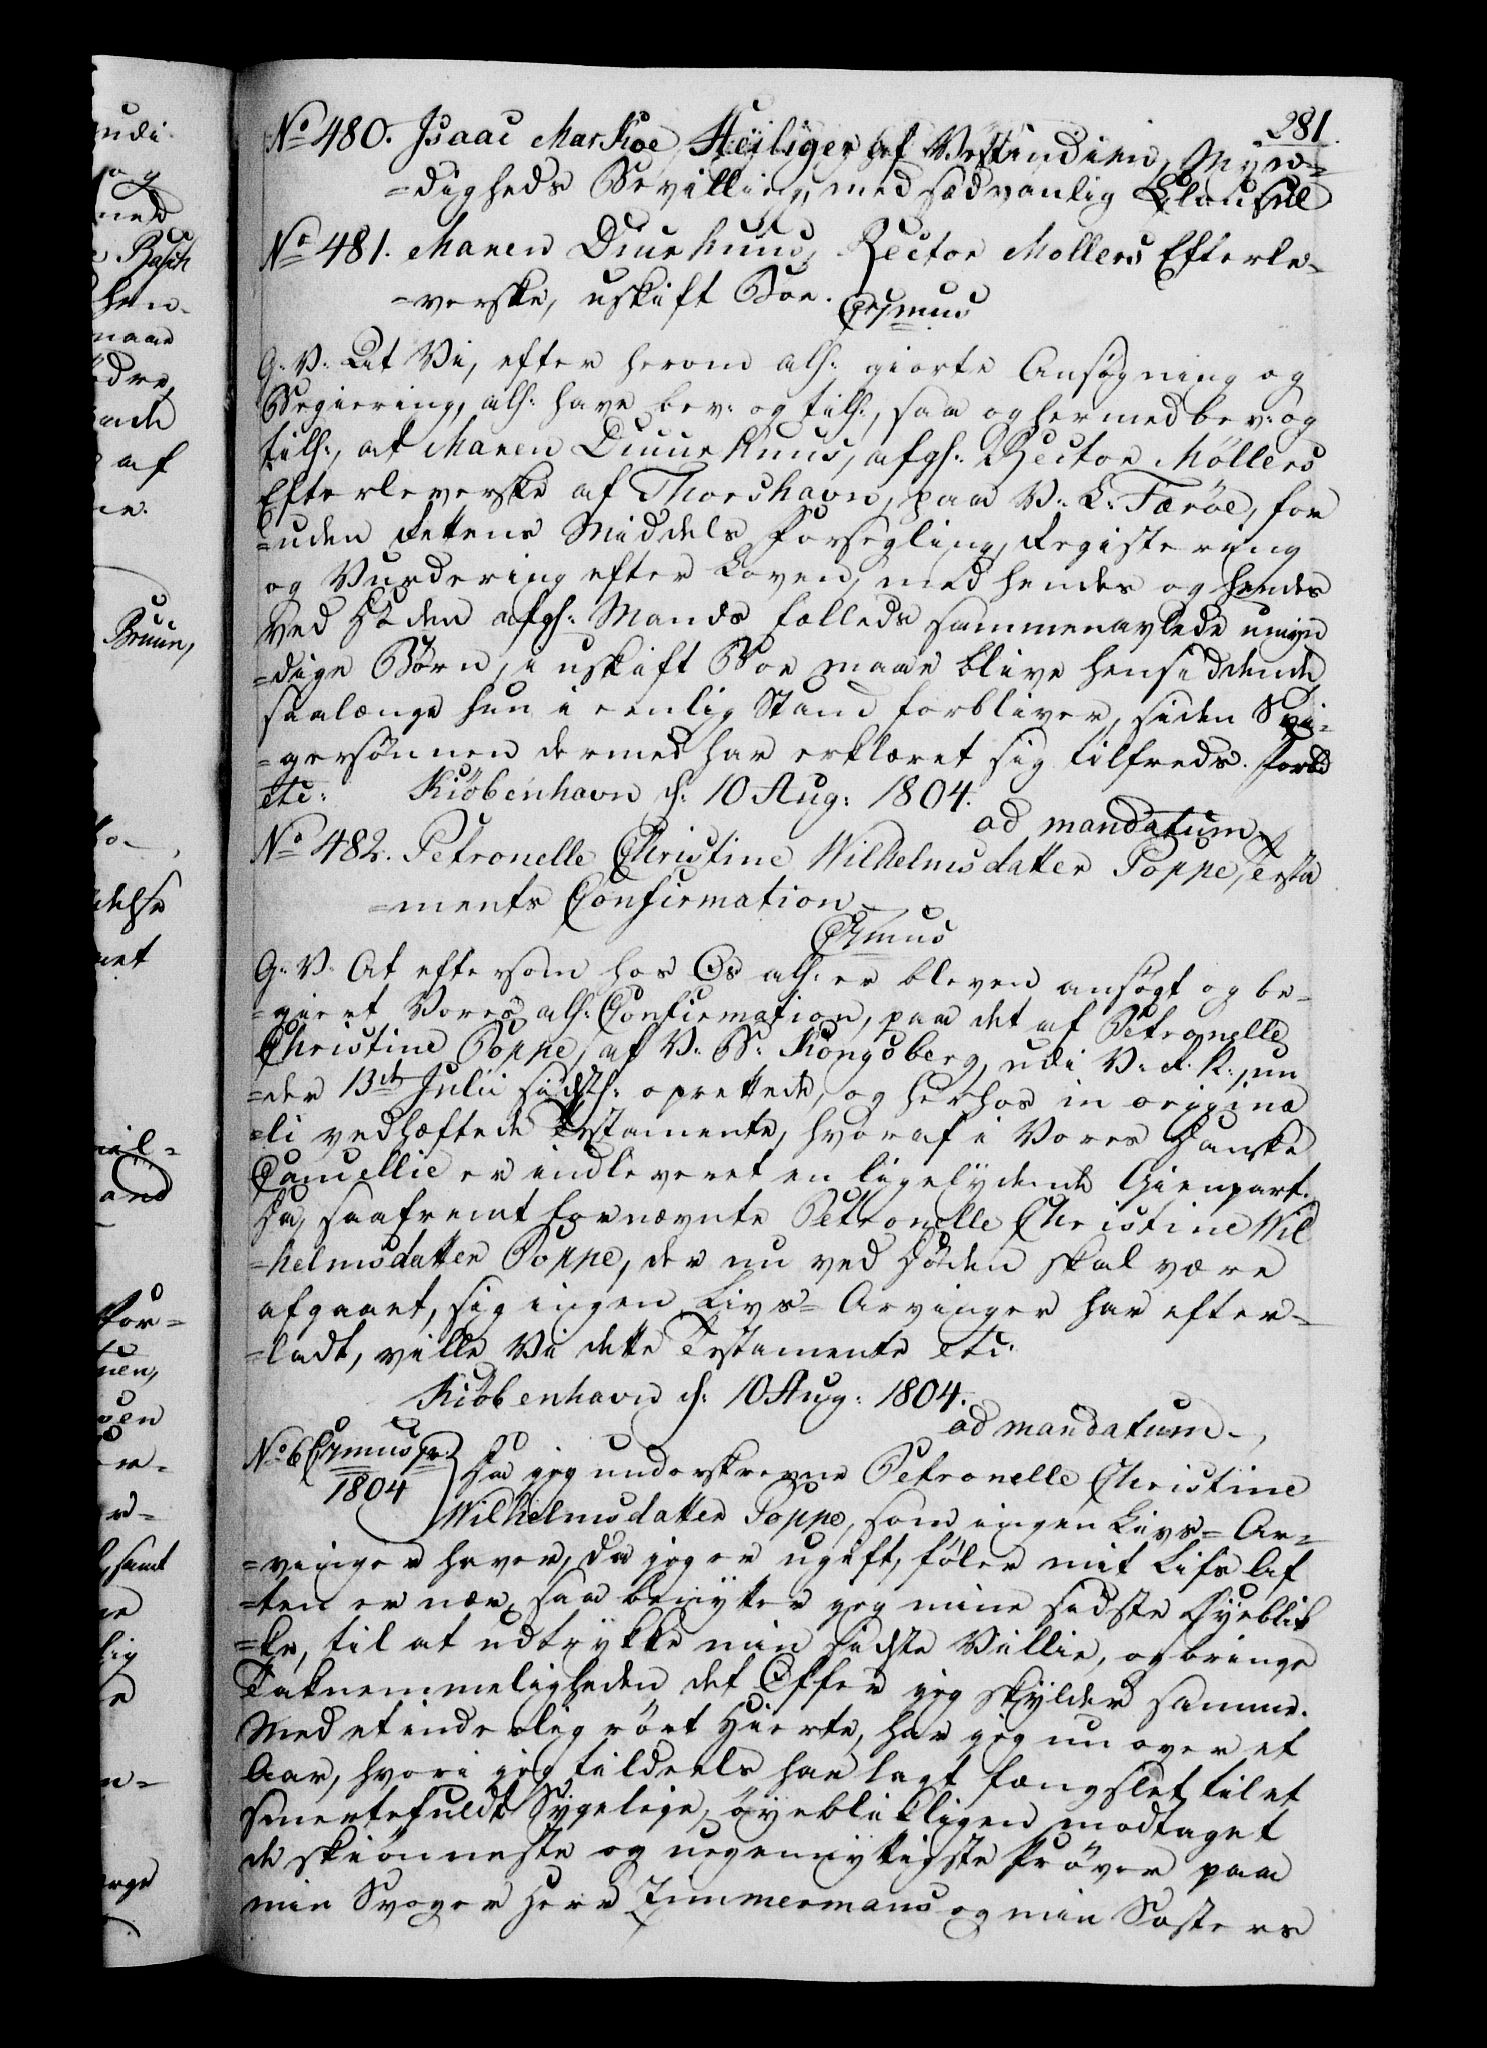 281.
No 480. Isaac Markoe Heiliger af Vestindien, Myn-
=digheds Bevilling, med sædvanlig Clausul
No 481. Maren Diurhuus, Rector Mollers Efterle-
=verske, uskift Boe. Gratis
G. V. At Vi, efter herom alh: giorte Ansøgning og
Begiering, alh: have bev: og tilh:, saa og hermed bev: og
tilh:, at Maren Diuurhuus, afg: Rector Möllers
Efterleverske af Thorshavn, paa V: L: Færöe, for
=uden Rettens Middels Forsegling, Registering
og Vurdering efter Loven, med hendes og hendes
ved Döden afg: Mands fælleds sammenavlede umyn
=dige Börn, i uskift Boe maae blive hensiddende,
saalænge hun i eenlig Stand forbliver, siden Svi-
=gersønnen dermed har erklæret sig tilfreds. Forbd
etc: Kiöbenhavn d: 10 Aug: 1804.
ad mandatum
No 482. Petronelle Christine Wilhelmsdatter Poppe, Testa
=ments Confirmation
G: V: At eftersom hos Os alh: er bleven ansøgt og be-
=giert Vores alh: Confirmation, paa det af Petronelle
Christine Poppe, af V: B: Kongsberg, udi V: R: N:, un
=der 13de Julii sidstl: oprettede, og herhos in origina
=li vedhæftede Testamente, hvoraf i Vores Danske
Cancellie er indleveret en ligelydende Gienpart.
Da, saafremt fornævnte Petronelle Christine Wil
=helmsdatter Poppe, der nu ved Döden skal være
afgaaet, sig ingen Livs= Arvinger har efter-
=ladt, ville Vi dette Testamente etc:
Kiöbenhavn d: 10 Aug: 1804.
ad mandatum
No 6
1804
Da jeg underskrevne Petronelle Christine
Wilhelmsdatter Poppe, som ingen Livs= Ar-
=vinger haver, da jeg er ugift, føler mit Lifs Af
=ten er nær, saa benytter jeg mine sidste Øyeblik
=ke, til at udtrykke min sidste Villie, og bringe
Taknemmeligheden det Offer jeg skylder samme.
Med et inderlig rört Hierte, har jeg nu over et
Aar, hvori jeg tildeels har lagt fængslet til et
smertefuldt Sygeleie, öyeblikkligen modtaget
de skiönneste og uegennyttigste Pröver paa
min Svoger Herr Zimmermans og min Søsters